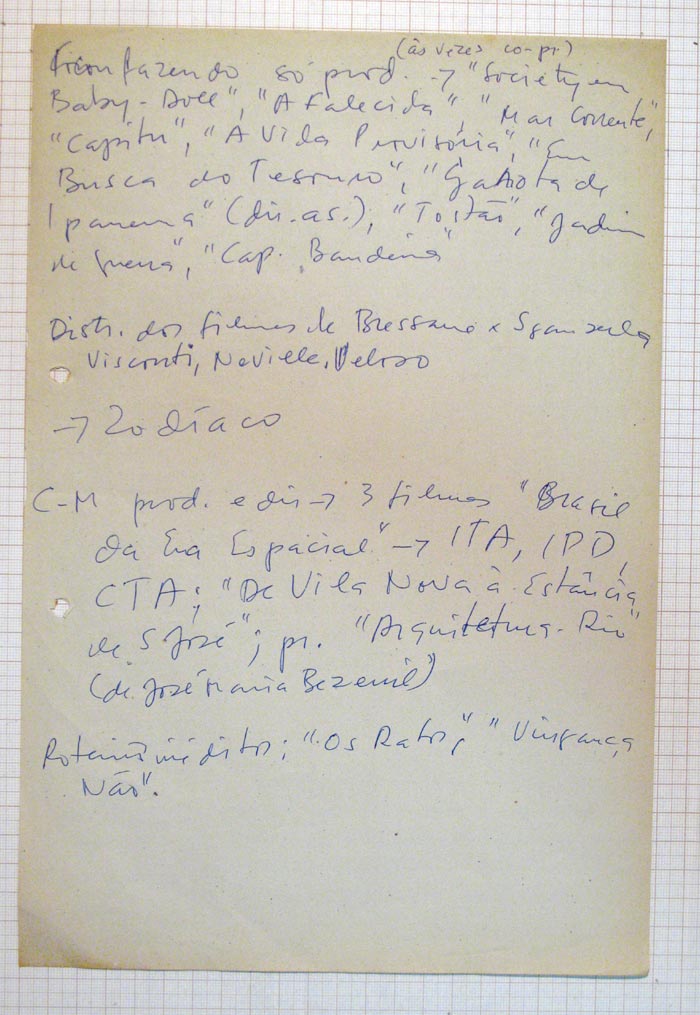 (às vezes co-pr)
Ficou fazendo só prod. → "Society em
Baby-Doll", "A Falecida", "Mar Corrente",
"Capitu", "A Vida Provisória", "Em
Busca do Tesouro", "Garota de
Ipanema" (dir. as.), "Tostão", "Jardim
de Guerra", "Cap. Bandeira"
Distr. dos filmes de Bressane x Sganzerla
Visconti, Neville, Veloso
→ Zodíaco
C-M prod. e dir → 3 filmes "Brasil
da Era Espacial" → ITA, IPD,
CTA; "De Vila Nova à Estância
de S José"; pr. "Arquitetura-Rio"
(de José Maria Bezerril)
Roteiros inéditos; "Os Ratos", "Vingança,
Não".